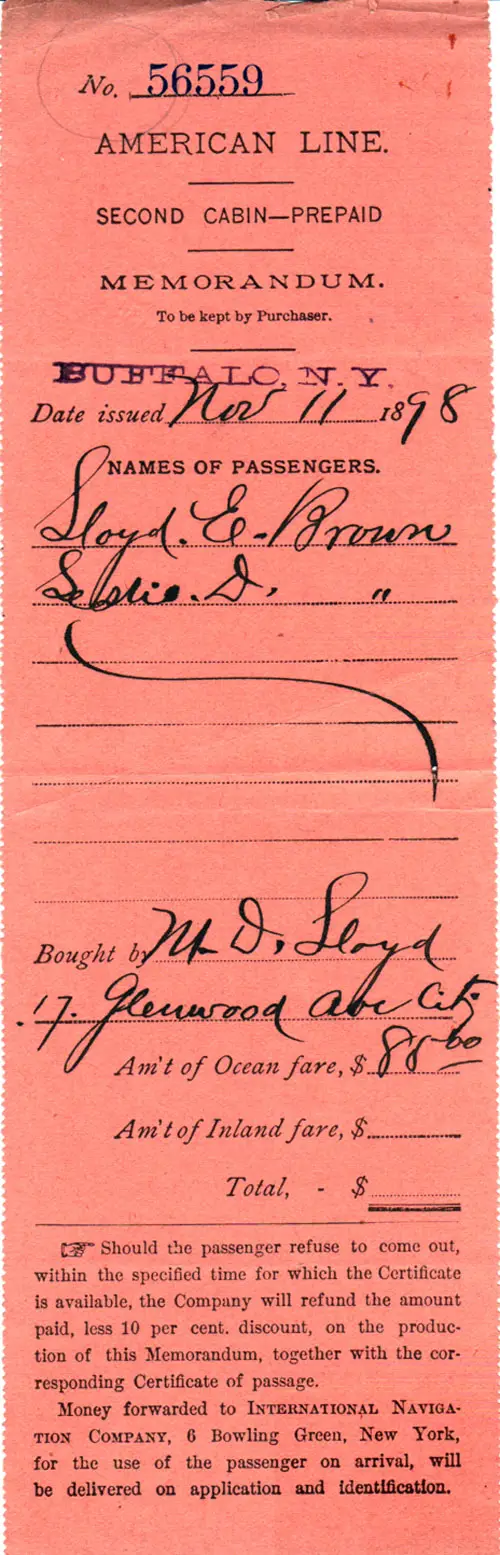 No. 56559
AMERICAN LINE.
SECOND CABIN—PREPAID
MEMORANDUM.
To be kept by Purchaser.
BUFFALO, N. Y.
Date issued Nov 11 1898
NAMES OF PASSENGERS.
Lloyd. E. Brown
Leslie. D. "
Bought by M. D. Lloyd
17. Glenwood Ave City
Am't of Ocean fare, $ 88 00
Am't of Inland fare, $
Total, - $
☞ Should the passenger refuse to come out,
within the specified time for which the Certificate
is available, the Company will refund the amount
paid, less 10 per cent. discount, on the produc-
tion of this Memorandum, together with the cor-
responding Certificate of passage.
Money forwarded to INTERNATIONAL NAVIGA-
TION COMPANY, 6 Bowling Green, New York,
for the use of the passenger on arrival, will
be delivered on application and identification.